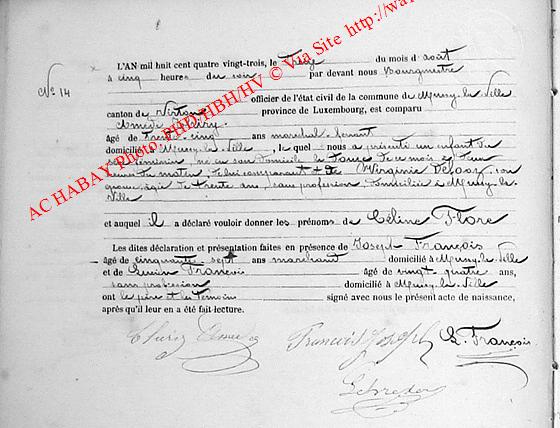 N° 14
L'AN mil huit cent quatre vingt-trois, le Treize du mois d'août
à cinq heures du soir par devant nous Bourgmestre
officier de l'état civil de la commune de Mussy-la-Ville
canton de Virton province de Luxembourg, est comparu
Amédé Thiry
âgé de Trente cinq ans maréchal ferrant
domicilié à Mussy-la-Ville, lequel nous a présenté un enfant du
sexe féminin, né au son domicile le Douze de ce mois à
heures du matin, de lui comparant et de Virginie son
épouse, âgée de trente ans, sans profession, domiciliée à Mussy-la-
Ville
et auquel il a déclaré vouloir donner les prénoms de Céline Flore
Les dites déclaration et présentation faites en présence de Joseph François
âgé de cinquante sept ans marchand domicilié à Mussy-la-Ville
et de Lucien François âgé de vingt quatre ans,
sans profession domicilié à Mussy-la-Ville
ont le père et les témoins signé avec nous le présent acte de naissance,
après qu'il leur en a été fait lecture.
Thiry Amédé François Joseph L. François
AC HABAY Photo: PHD/HBH/HV © Via Site http://wa